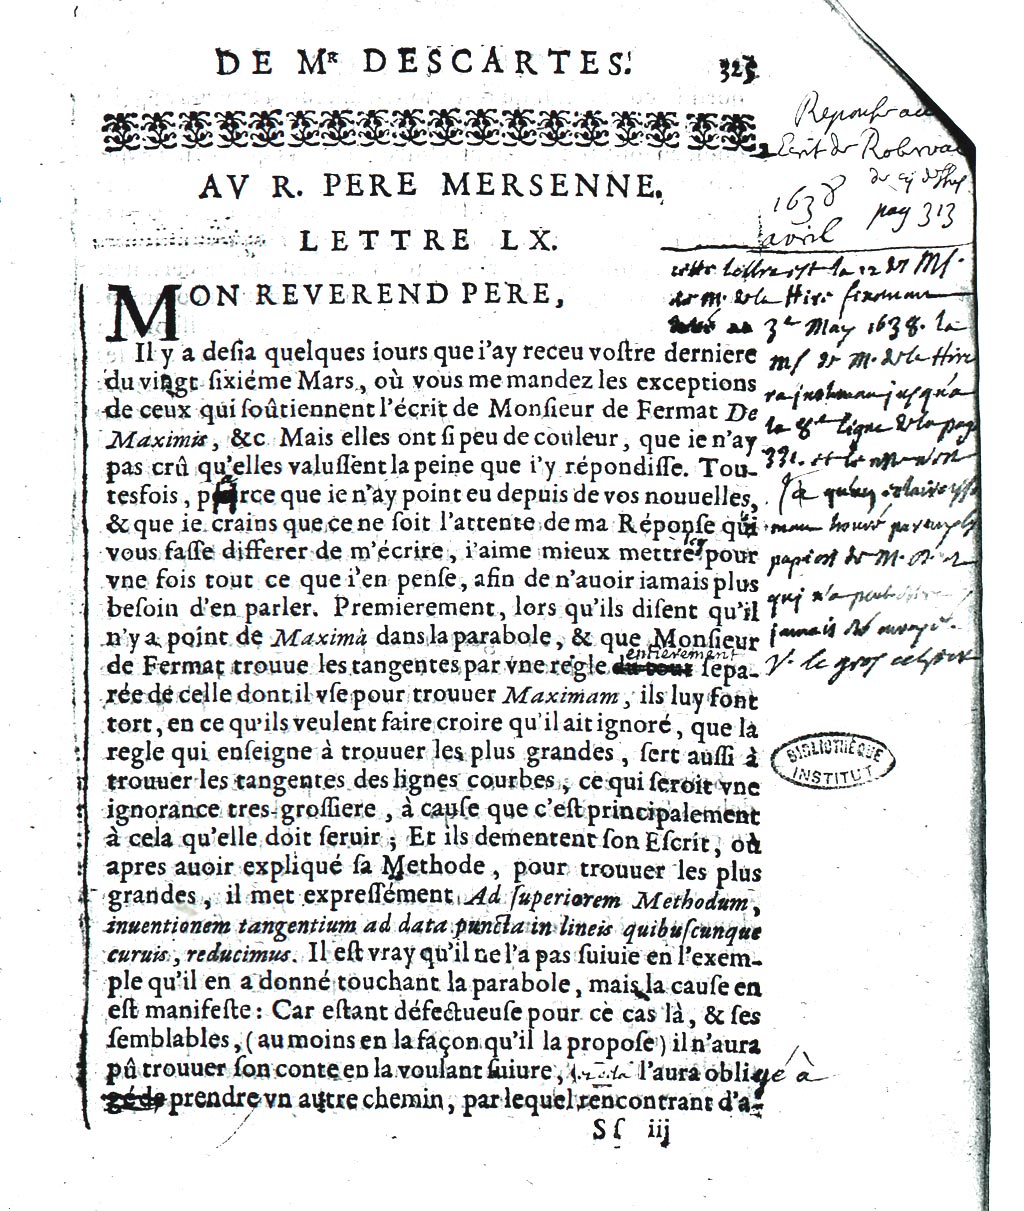 DE Mᴿ DESCARTES.
325
AV R. PERE MERSENNE.
LETTRE LX.
MON REVEREND PERE,
Il y a desia quelques iours que i'ay receu vostre derniere
du vingt ſixiéme Mars, où vous me mandez les exceptions
de ceux qui ſoûtiennent l'écrit de Monſieur de Fermat De
Maximis, &c. Mais elles ont ſi peu de couleur, que ie n'ay
pas crû qu'elles valuſſent la peine que i'y répondiſſe. Tou-
tesfois, parce que ie n'ay point eu depuis de vos nouuelles,
& que ie crains que ce ne ſoit l'attente de ma Réponſe qui
vous faſſe differer de m'écrire, i'aime mieux mettre icy pour
vne fois tout ce que i'en penſe, afin de n'auoir iamais plus
beſoin d'en parler. Premierement, lors qu'ils diſent qu'il
n'y a point de Maxima dans la parabole, & que Monſieur
de Fermat trouue les tangentes par vne regle du tout entierement ſepa-
rée de celle dont il vſe pour trouuer Maximam, ils luy font
tort, en ce qu'ils veulent faire croire qu'il ait ignoré, que la
regle qui enſeigne à trouuer les plus grandes, ſert auſſi à
trouuer les tangentes des lignes courbes, ce qui ſeroit vne
ignorance tres-groſſiere, à cauſe que c'eſt principalement
à cela qu'elle doit ſeruir; Et ils dementent ſon Eſcrit, où
apres auoir expliqué ſa Methode, pour trouuer les plus
grandes, il met expreſſément Ad ſuperiorem Methodum,
inuentionem tangentium ad data puncta in lineis quibuſcunque
curuis, reducimus. Il eſt vray qu'il ne l'a pas ſuiuie en l'exem-
ple qu'il en a donné touchant la parabole, mais la cauſe en
eſt manifeſte: Car eſtant défectueuſe pour ce cas là, & ſes
ſemblables, (au moins en la façon qu'il la propoſe) il n'aura
pû trouuer ſon conte en la voulant ſuiure, l'aura obligé à
gé de prendre vn autre chemin, par lequel rencontrant d'a-
Sſ iij
Escrit de Roberval
pag 313
1638
avril
cette lettre est la 12 des MS.
de M. de la Hire
3e May 1638. la
MS de M. de la Hire
jusqu'a
la 8e ligne de la page
331. et le
papiers de M.
jamais
V. le gros cahier
BIBLIOTHÈQUE
INSTITUT